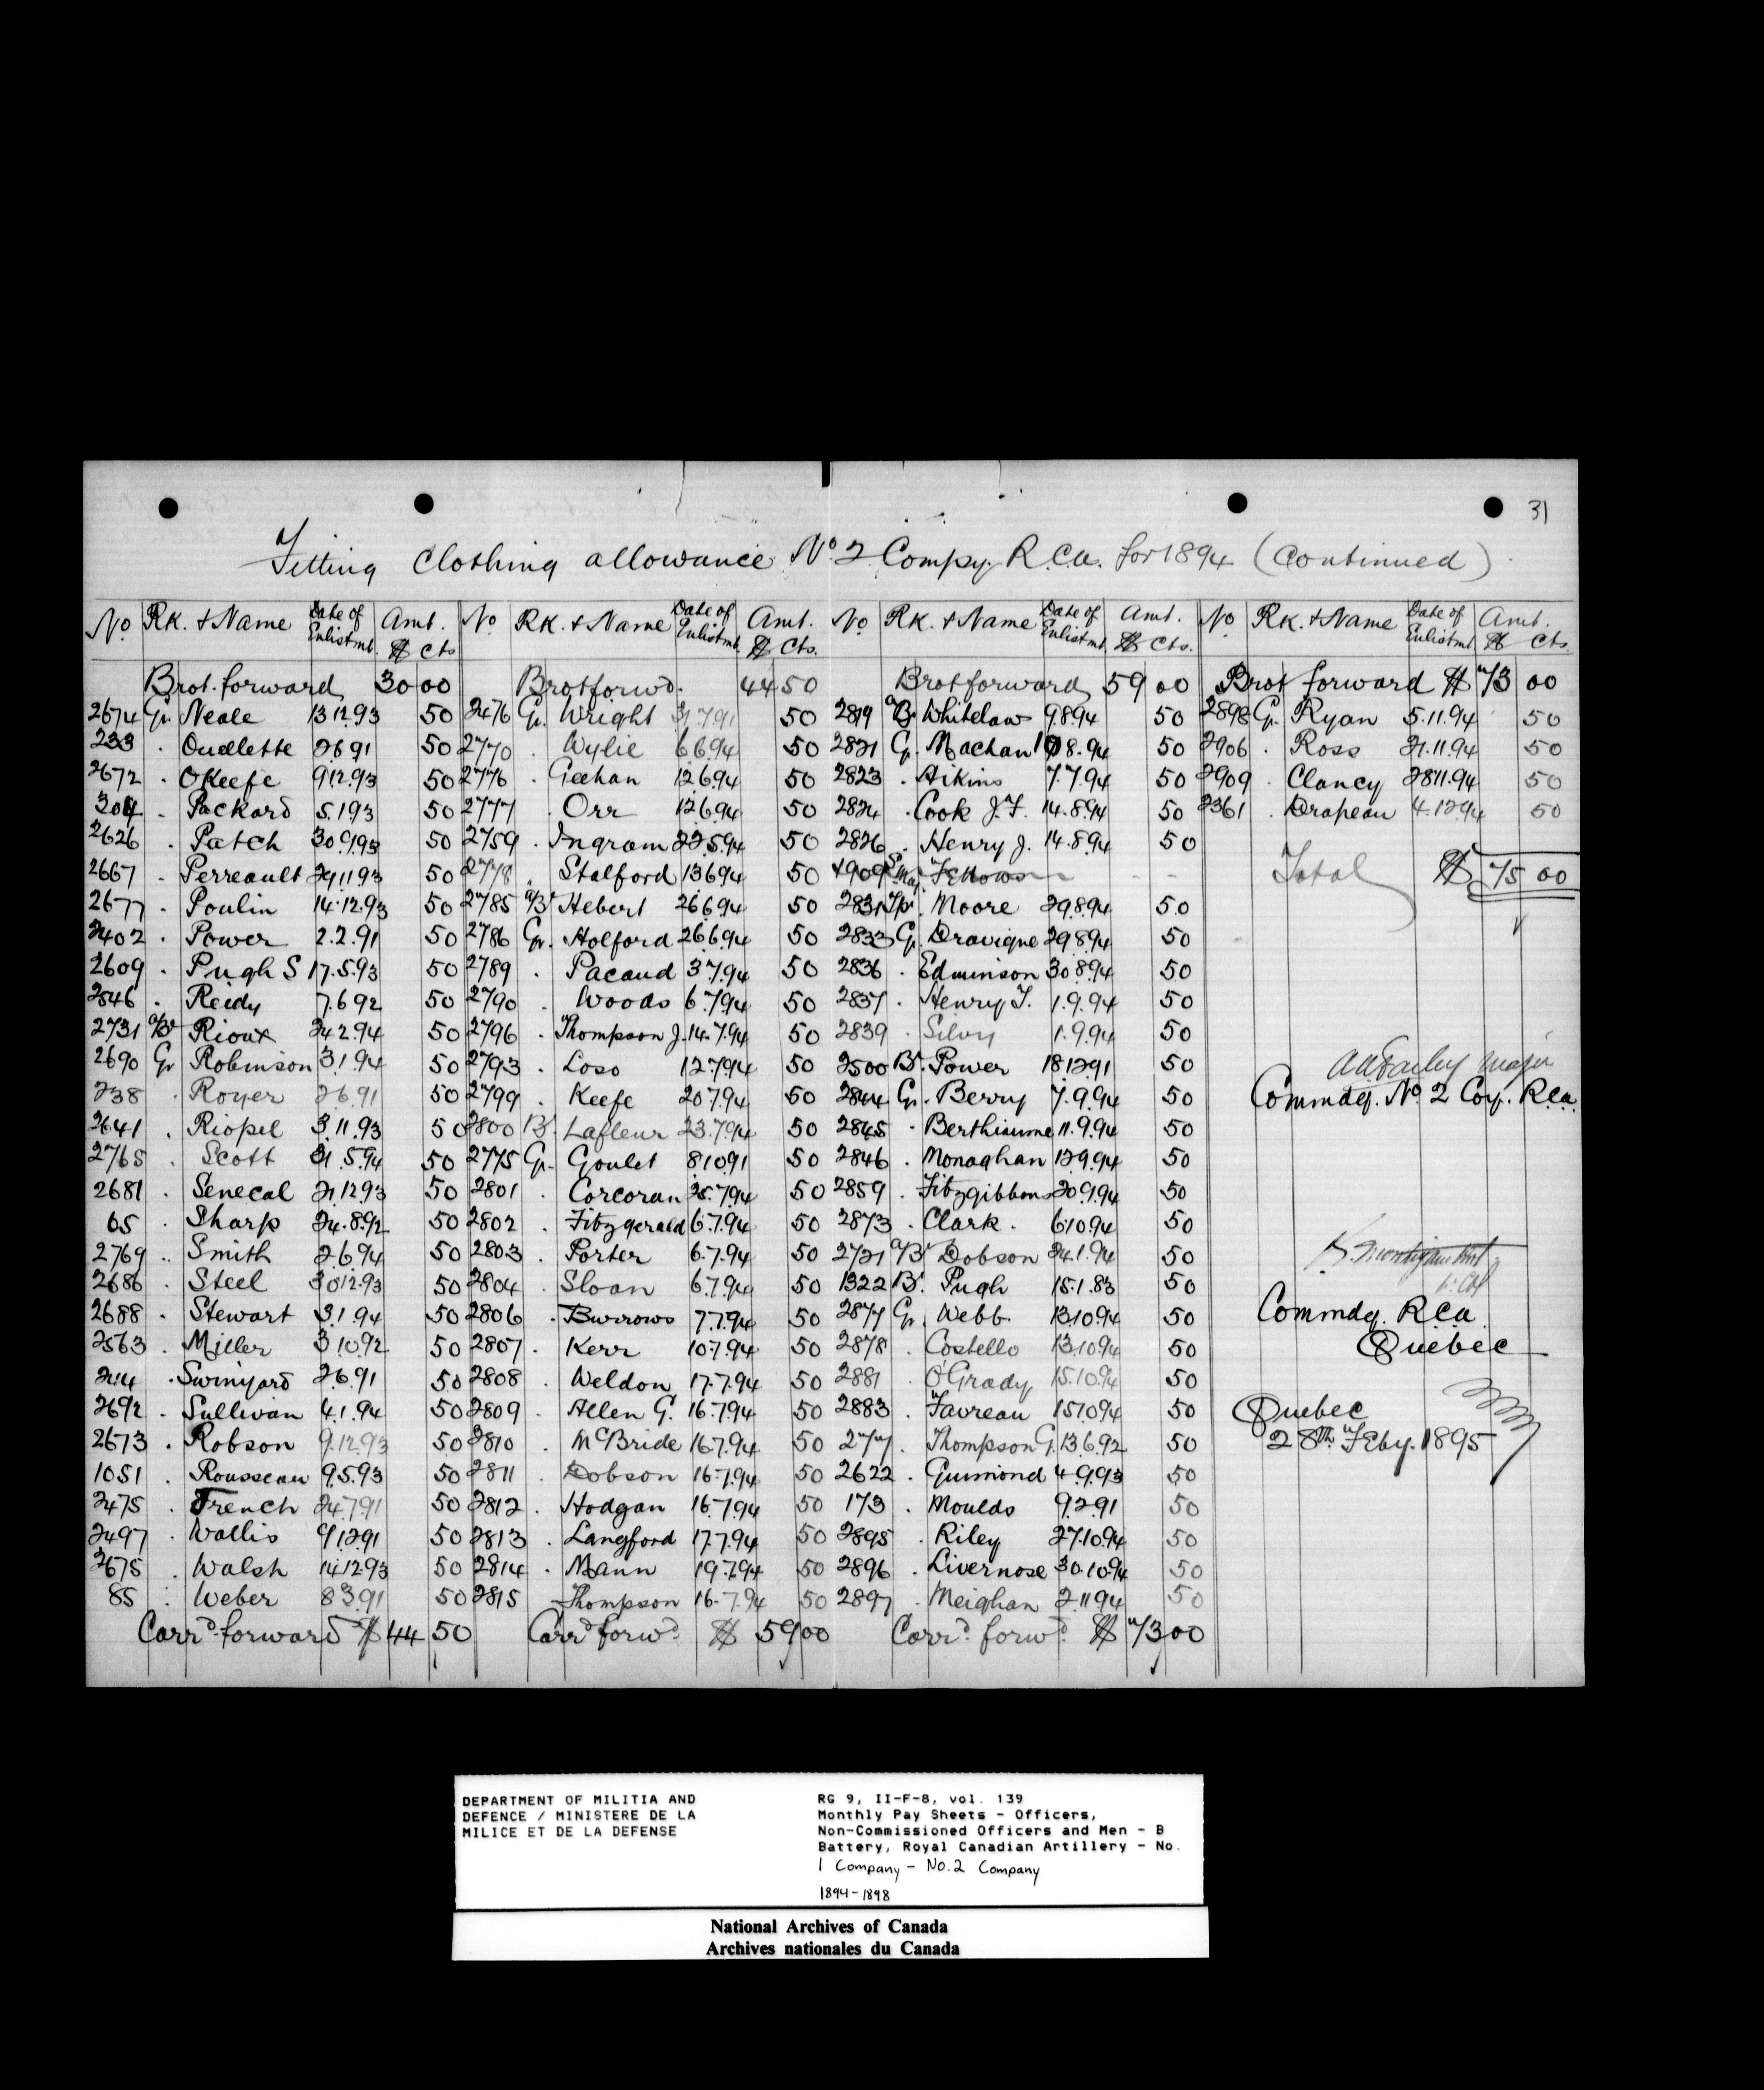 31
Fitting Clothing allowance No. 2 Compy. R.C.A. for 1894 (Continued)
No Rk. + Name Date of Enlistmt. Amt. $ Cts
Brot. forward 30 00
2674 Gr. Neale 13.12.93 50
233 . Ouellette 2.6.91 50
2672 . OKeefe 9.12.93 50
304 . Packard 5.1.93 50
2626 . Patch 30.9.93 50
2667 . Perreault 29.11.93 50
2677 . Poulin 14.12.93 50
2402 . Power 2.2.91 50
2609 . Pugh S 17.5.93 50
2546 . Reidy 7.6.92 50
2731 a/Br Rioux 24.2.94 50
2690 Gr Robinson 3.1.94 50
238 . Royer 2.6.91 50
2641 . Riopel 3.11.93 50
2765 . Scott 31.5.94 50
2681 . Senecal 21.12.93 50
65 . Sharp 24.8.92 50
2769 .. Smith 2.6.94 50
2686 . Steel 30.12.93 50
2688 . Stewart 3.1.94 50
2563 . Miller 3.10.92 50
214 . Swinyard 2.6.91 50
2692 . Sullivan 4.1.94 50
2673 . Robson 9.12.93 50
1051 . Rousseau 9.5.93 50
2475 . French 24.7.91 50
2497 . Wallis 9.12.91 50
2675 . Walsh 14.12.93 50
85 : Weber 8.3.91 50
Carrd. forward $ 44 50
No Rk. + Name Date of Enlistmt. Amt. $ Cts.
Brot forwd. 44 50
2476 Gr. Wright 31.7.91 50
2770 . Wylie 6.6.94 50
2776 . Geehan 12.6.94 50
2777 . Orr 12.6.94 50
2759 . Ingram 22.5.94 50
2778 . Stalford 13.6.94 50
2785 a/Br Hebert 26.6.94 50
2786 Gr. Holford 26.6.94 50
2789 . Pacaud 3.7.94 50
2790 . Woods 6.7.94 50
2796 . Thompson J. 14.7.94 50
2793 . Loso 12.7.94 50
2799 . Keefe 20.7.94 50
2800 Br. Lafleur 23.7.94 50
2775 Gr. Goulet 8.10.91 50
2801 . Corcoran 25.7.94 50
2802 . Fitzgerald 6.7.94 50
2803 . Porter 6.7.94 50
2804 . Sloan 6.7.94 50
2806 . Burrows 7.7.94 50
2807 . Kerr 10.7.94 50
2808 . Weldon 17.7.94 50
2809 . Allen G. 16.7.94 50
2810 . McBride 16.7.94 50
2811 . Dobson 16.7.94 50
2812 . Hodgan 16.7.94 50
2813 . Langford 17.7.94 50
2814 . Mann 19.7.94 50
2815 Thompson 16.7.94 50
Carrd forwd. $ 59 00
No Rk. + Name Date of Enlistmt. Amt. $ Cts.
Brot forward 59 00
2819 a/Br Whitelaw 9.8.94 50
2821 Gr. Machan 8.94 50
2823 . Aikins 7.7.94 50
2824 . Cook J.F. 14.8.94 50
2826 . Henry J. 14.8.94 50
S. Maj. Fellows - -
2831 Tpr. Moore 29.8.94 50
2833 Gr. Dravigne 29.8.94 50
2836 . Edminson 30.8.94 50
2837 . Henry T. 1.9.94 50
2839 . Silvy 1.9.94 50
2500 Br. Power 18.12.91 50
2844 Gr. Berry 7.9.94 50
2845 . Berthiaume 11.9.94 50
2846 . Monaghan 12.9.94 50
2859 . Fitzgibbons 20.9.94 50
2873 . Clark . 6.10.94 50
2721 a/Br Dobson 24.1.94 50
1322 Br. Pugh 15.1.83 50
2877 Gr. Webb 13.10.94 50
2878 . Costello 13.10.94 50
2881 . O'Grady 15.10.94 50
2883 . Favreau 15.10.94 50
277 . Thompson G. 13.6.92 50
2622 . Guimond 4.9.93 50
173 . Moulds 9.2.91 50
2895 . Riley 27.10.94 50
2896 . Livernose 30.10.94 50
2897 . Meighan 2.11.94 50
Carrd. forwd. $ 73 00
No Rk. + Name Date of Enlistmt. Amt. $ Cts.
Brot forward $ 73 00
2898 Gr. Ryan 5.11.94 50
2906 . Ross 21.11.94 50
2909 . Clancy 28.11.94 50
2361 . Drapeau 4.12.94 50
Total $ 75 00
Major
Commdg. No. 2 Coy. R.C.A.
Commdg. R.C.A.
Quebec
Quebec
28th Feby. 1895
DEPARTMENT OF MILITIA AND
DEFENCE / MINISTERE DE LA
MILICE ET DE LA DEFENSE
RG 9, II-F-8, vol. 139
Monthly Pay Sheets - Officers,
Non-Commissioned Officers and Men - B
Battery, Royal Canadian Artillery - No.
1 Company - No.2 Company
1894-1898
National Archives of Canada
Archives nationales du Canada